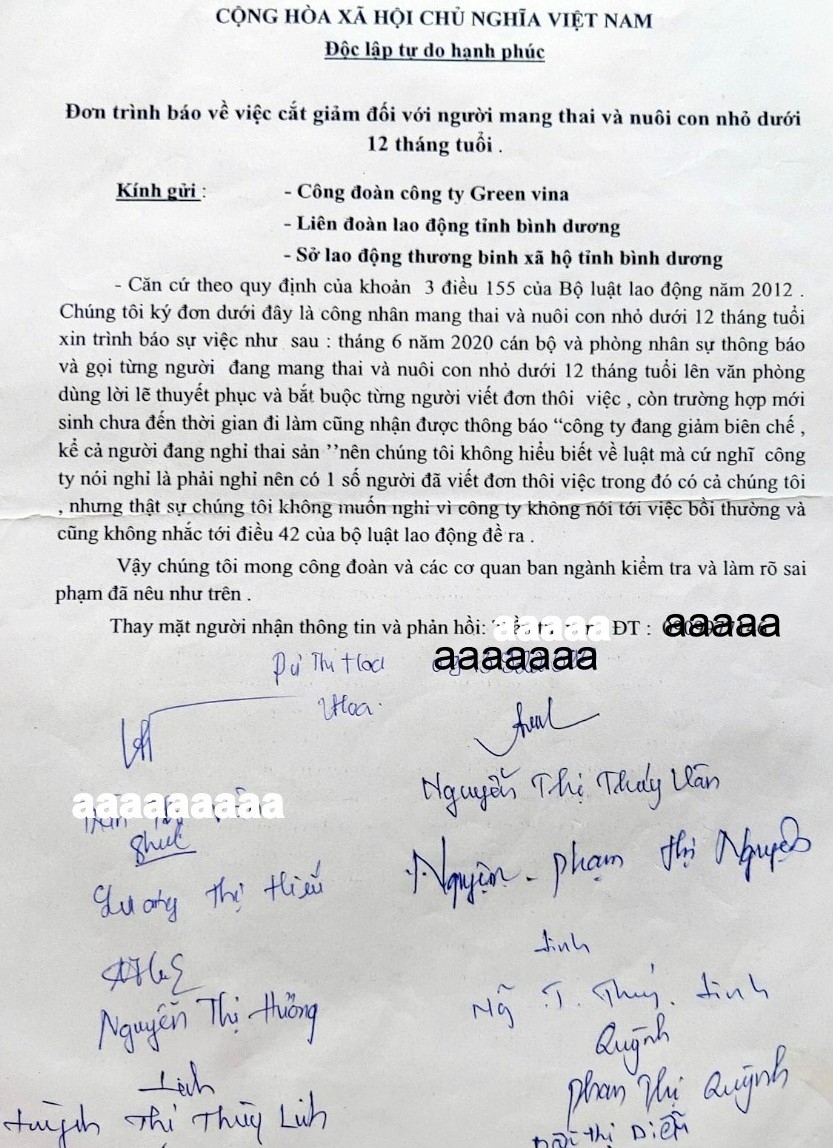 CỘNG HÒA XÃ HỘI CHỦ NGHĨA VIỆT NAM
Độc lập tự do hạnh phúc
Đơn trình báo về việc cắt giảm đối với người mang thai và nuôi con nhỏ dưới
12 tháng tuổi .
Kính gửi : - Công đoàn công ty Green vina
- Liên đoàn lao động tỉnh bình dương
- Sở lao động thương binh xã hộ tỉnh bình dương
- Căn cứ theo quy định của khoản 3 điều 155 của Bộ luật lao động năm 2012 .
Chúng tôi ký đơn dưới đây là công nhân mang thai và nuôi con nhỏ dưới 12 tháng tuổi
xin trình báo sự việc như sau : tháng 6 năm 2020 cán bộ và phòng nhân sự thông báo
và gọi từng người đang mang thai và nuôi con nhỏ dưới 12 tháng tuổi lên văn phòng
dùng lời lẽ thuyết phục và bắt buộc từng người viết đơn thôi việc , còn trường hợp mới
sinh chưa đến thời gian đi làm cũng nhận được thông báo “công ty đang giảm biên chế ,
kể cả người đang nghỉ thai sản ”nên chúng tôi không hiểu biết về luật mà cứ nghĩ công
ty nói nghỉ là phải nghỉ nên có 1 số người đã viết đơn thôi việc trong đó có cả chúng tôi
, nhưng thật sự chúng tôi không muốn nghỉ vì công ty không nói tới việc bồi thường và
cũng không nhắc tới điều 42 của bộ luật lao động đề ra .
Vậy chúng tôi mong công đoàn và các cơ quan ban ngành kiểm tra và làm rõ sai
phạm đã nêu như trên .
Thay mặt người nhận thông tin và phản hồi: aaaaa ĐT : aaaaa
Thị Hoa aaaaaaa
Hoa
Nguyễn Thị Thúy Vân
aaaaaaaaa
Lương Thị Hiếu
Nguyện - Phạm Thị Nguyện
Linh
Nguyễn Thị Hường
Ng T. Thuỳ. Linh
Quỳnh
Phan Thị Quỳnh
Linh
Huỳnh Thị Thùy Linh
Thị Diễm